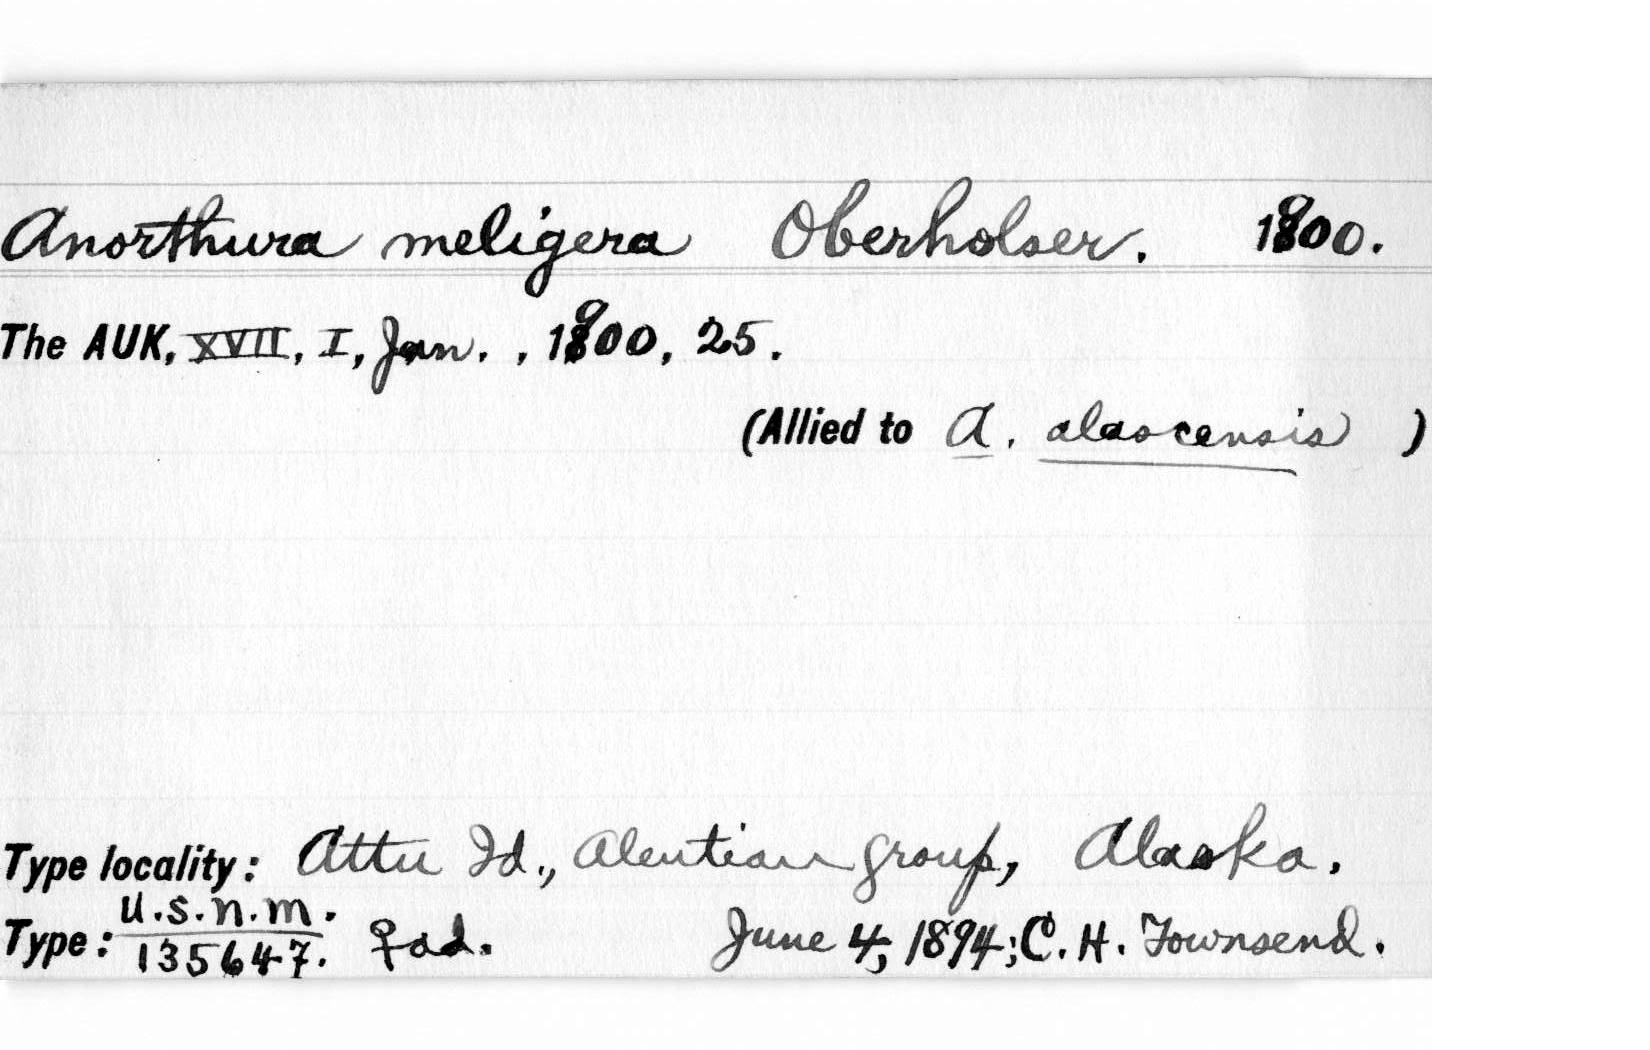 Anorthura meligera Oberholser. 1900.
The AUK, XVII, I, Jan. , 1900, 25.
(Allied to A. alascensis )
Type locality: Attu Id., Aleutian group, Alaska.
U.S.N.M.
Type: 135647. ♀ad. June 4, 1894; C. H. Townsend.